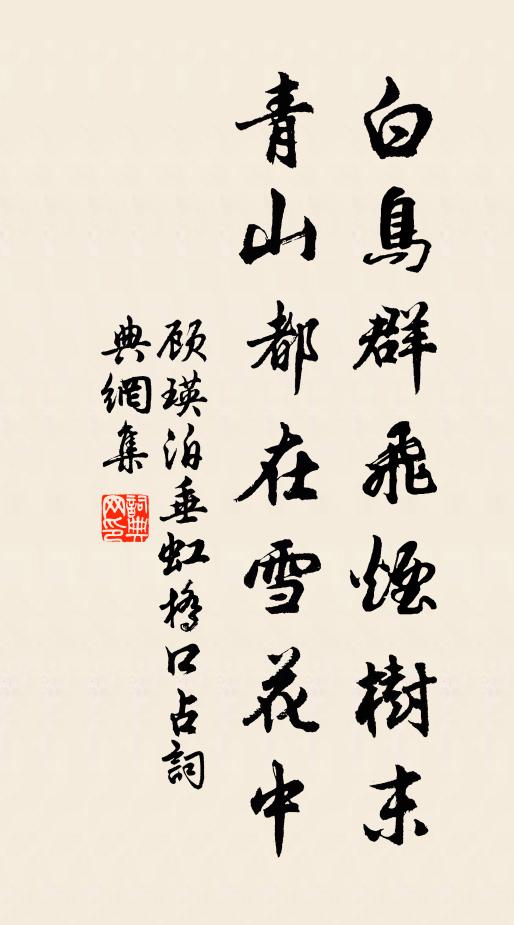 白鳥群飛煙樹末
青山都在雪花中
顾瑛泊垂虹橋口占詞
典網集
詞典網印